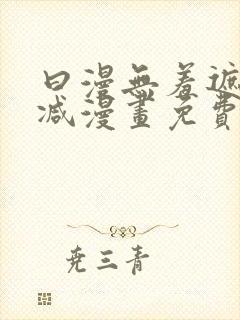 日漫無羞遮
减漫畫免費
尭三青